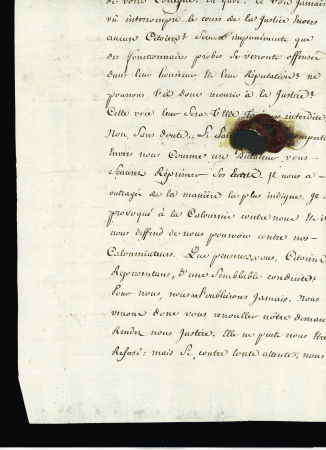 de votre Collegue. En quoi! Se voir Jamais
vû interrompre le cours de la Justice envers
aucun Citoien? Sera-t impunément que
des fonctionnaires probes se verront offenser
dans leur honneur Et leur Réputation? ne
pourront Ils donc recourir à la Justice?
Cette voie leur sera t'Elle interdite,
Non, Sans doute. Si comporte
Envers nous Comme un Dictateur, vous
Saurez Réprimer Il nous a
outragés de la manière la plus indigne. Il a
provoqué à la Calomnie contre nous Et il
nous deffend de nous pourvoir contre nos
Calomniateurs. Que pensez vous, Citoiens
Représentans, d'une Semblable conduite?
Pour nous, nous ne l'oublierons Jamais. Nous
venons donc vous renouveller nôtre deman
Rendez nous Justice. Elle ne peut nous Etre
Refusée: mais Si, contre toute attente, nous